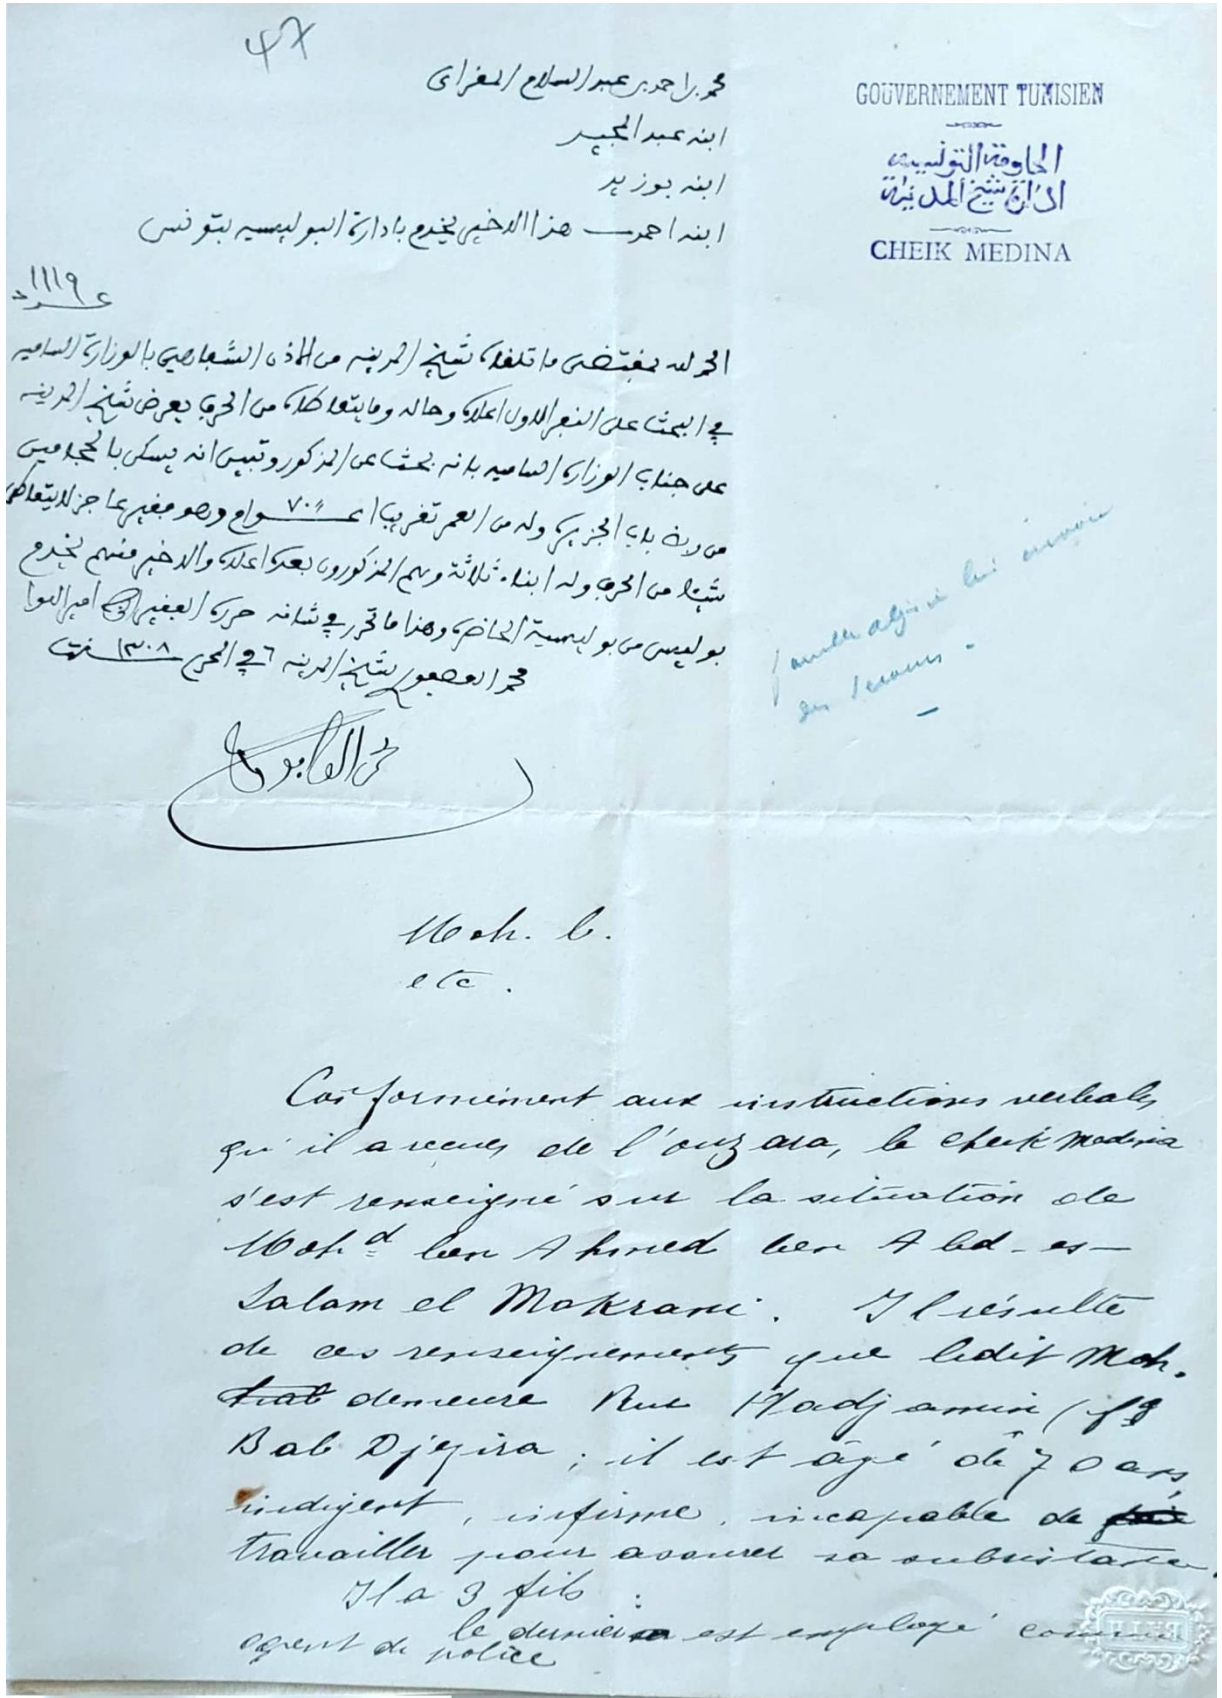 47
محمد بن احمد بن عبد السلام المقراني
ابنه عبد المجيد
ابنه بوزيد
ابنه احمد هذا الاخير يخدم بادارة البوليسيه بتونس
GOUVERNEMENT TUNISIEN
الحكومة التونسية
ادارة شيخ المدينة
CHEIK MEDINA
عدد ١١١٩
الحمد لله بمقتضى ما تلقاه شيخ المدينه من الاذن الشفاهي بالوزارة الساميه
في البحث على النفر الاول اعلاه وحاله وما يتعاطاه من الحرف يعرض شيخ المدينه
على جناب الوزارة الساميه بانه بحث عن المذكور وتبين انه يسكن بالحجامين
من ربط باب الجزيرة وله من العمر تقريبا ٧٠ اعوام وهو فقير عاجز لا يتعاطى
شيئا من الحرف وله ابناء ثلاثة وهم المذكورون بعده اعلاه والاخير منهم يخدم
بوليس من بوليسية الحاضرة وهذا ما تحرر في شانه حرره الفقير الى ربه امير اللوا
محمد العصفوري شيخ المدينه في ٦ المحرم سنة ١٣٠٨
famille algérienne lui
des secours.
Moh. b.
etc.
Conformément aux instructions verbales
qu'il a reçues de l'ouzara, le cheik Medina
s'est renseigné sur la situation de
Mohd ben Ahmed ben Abd-es-
Salam el Mokrani. Il résulte
de ces renseignements que ledit Moh.
demeure Rue Hadjamin (fg
Bab Djezira ; il est âgé de 70 ans,
indigent, infirme, incapable de
travailler pour assurer sa subsistance.
Il a 3 fils :
le dernier est employé comme
agent de police